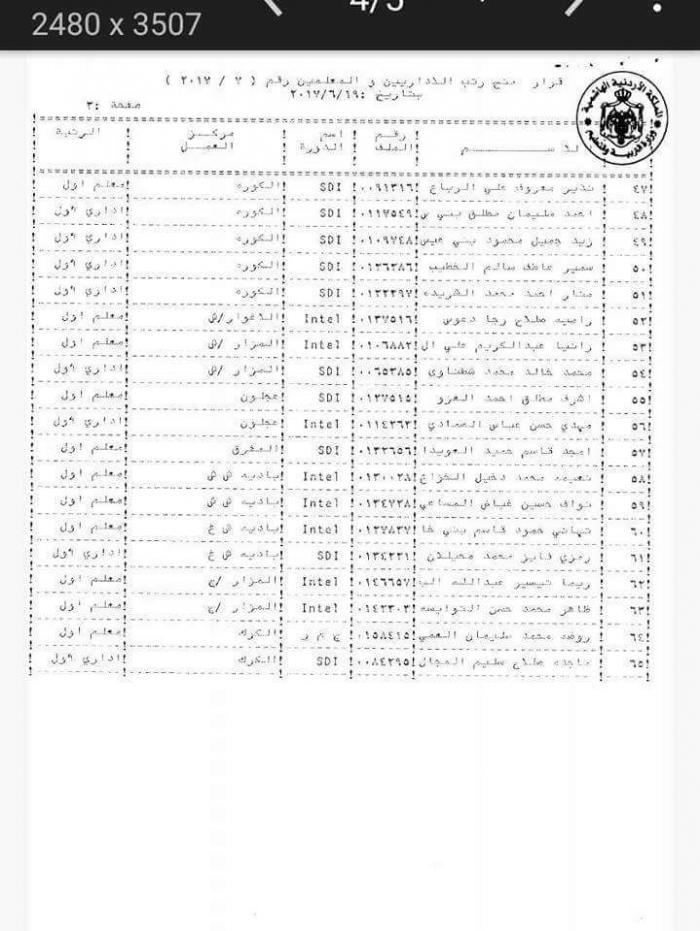 4/5
2480 x 3507
قرار منح رتب للاداريين و المعلمين رقم ( ٧ / ٢٠١٧ )
بتاريخ :٢٠١٧/٦/١٩
صفحة :٣
المملكة الأردنية الهاشمية
وزارة التربية والتعليم
الاســـــــــم ! رقم الملف ! اسم الدورة ! مركز العمل ! الرتبة
٤٧! نذير معروف علي الرباع !٠٠٩١٣١٦! SDI !الكوره !معلم اول
٤٨! احمد سليمان مطلق بني !٠١١٧٥٤٩! SDI !الكوره !اداري اول
٤٩! زيد جميل محمود بني عيس!٠١٠٩٧٤٨! SDI !الكوره !اداري اول
٥٠! سمير عاطف سالم الخطيب !٠١٣٦٣٨٦! SDI !الكوره !اداري اول
٥١! منار احمد محمد الشريده !٠١٣٣٣٩٧! SDI !الكوره !اداري اول
٥٢! راضيه صلاح رجا دعوس !٠١٣٧٥١٦! Intel !الاغوار/ش !معلم اول
٥٣! رانيا عبدالكريم علي ال!٠١٠٦٨٨٢! Intel !المزار /ش !معلم اول
٥٤! محمد خالد محمد شطناوي !٠٠٦٥٣٨٥! SDI !المزار /ش !اداري اول
٥٥! اشرف مطلق احمد الغزو !٠١٢٧٥١٥! SDI !عجلون !معلم اول
٥٦! مهدي حسن عباس الصمادي !٠١١٤٣٦٣! Intel !عجلون !اداري اول
٥٧! امجد قاسم حميد العويدا!٠١٣٢٦٥٦! SDI !المفرق !معلم اول
٥٨! نعيمه محمد دخيل الخزاع!٠١٣٠٠٢٨! Intel !باديه ش ش !معلم اول
٥٩! نواف حسين غياض المساعي!٠١٣٤٧٣٨! Intel !باديه ش ش !معلم اول
٦٠! تهاني حمود قاسم بني خا!٠١٣٧٨٣٧! Intel !باديه ش غ !معلم اول
٦١! رمزي فايز محمد محيلان !٠١٣٤٣٣١! SDI !باديه ش غ !اداري اول
٦٢! ريما تيسير عبدالله الب!٠١٤٦٦٥٧! Intel !المزار /ج !معلم اول
٦٣! ظاهر محمد حسن النوايسه !٠١٤٣٣٠٢! Intel !المزار /ج !معلم اول
٦٤! روضه محمد سليمان !٠١٥٨٤١٥! ج م ر !الكرك !معلم اول
٦٥! ماجده صلاح سليم المجال!٠٠٨٤٢٩٥! SDI !الكرك !اداري اول